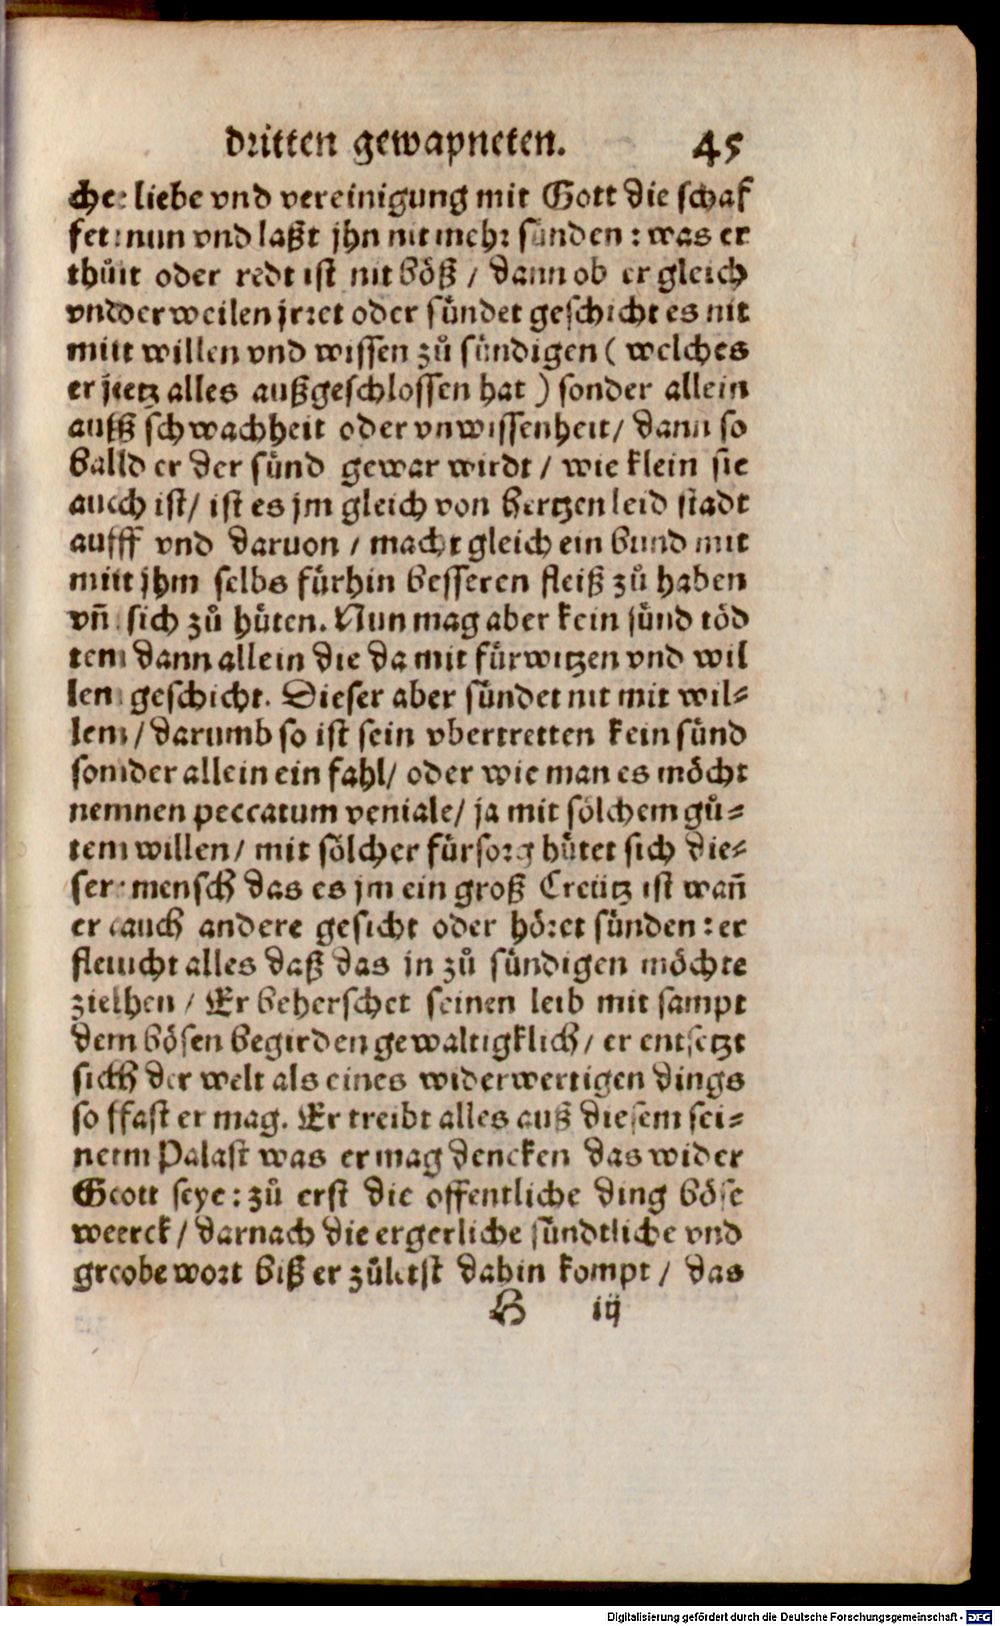 dritten gewapneten. 45
che liebe vnd vereinigung mit Gott die schaf
fet nun vnd laßt jhn nit mehr sünden: was er
thůt oder redt ist nit böß / dann ob er gleich
vnderweilen jrret oder sündet geschicht es nit
mit willen vnd wissen zů sündigen ( welches
er jetz alles außgeschlossen hat ) sonder allein
auß schwachheit oder vnwissenheit / dann so
bald er der sünd gewar wirdt / wie klein sie
auch ist / ist es jm gleich von hertzen leid stadt
auff vnd daruon / macht gleich ein bund mit
mit jhm selbs fürhin besseren fleiß zů haben
vñ sich zů hüten. Nun mag aber kein sünd töd
ten dann allein die da mit fürwitzen vnd wil
len geschicht. Dieser aber sündet nit mit wil-
len / darumb so ist sein vbertretten kein sünd
sonder allein ein fahl / oder wie man es möcht
nemnen peccatum veniale / ja mit sölchem gů-
tem willen / mit sölcher fürsorg hütet sich die-
ser mensch das es jm ein groß Creütz ist wañ
er auch andere gesicht oder höret sünden: er
fleucht alles daß das jn zů sündigen möchte
ziehen / Er beherschet seinen leib mit sampt
dem bösen begirden gewaltigklich / er entsetzt
sich der welt als eines widerwertigen dings
so fast er mag. Er treibt alles auß diesem sei-
nem Palast was er mag dencken das wider
Gott seye: zů erst die offentliche ding böse
werck / darnach die ergerliche sündtliche vnd
grobe wort biß er zůletst dahin kompt / das
H iij
Digitalisierung gefördert durch die Deutsche Forschungsgemeinschaft - DFG